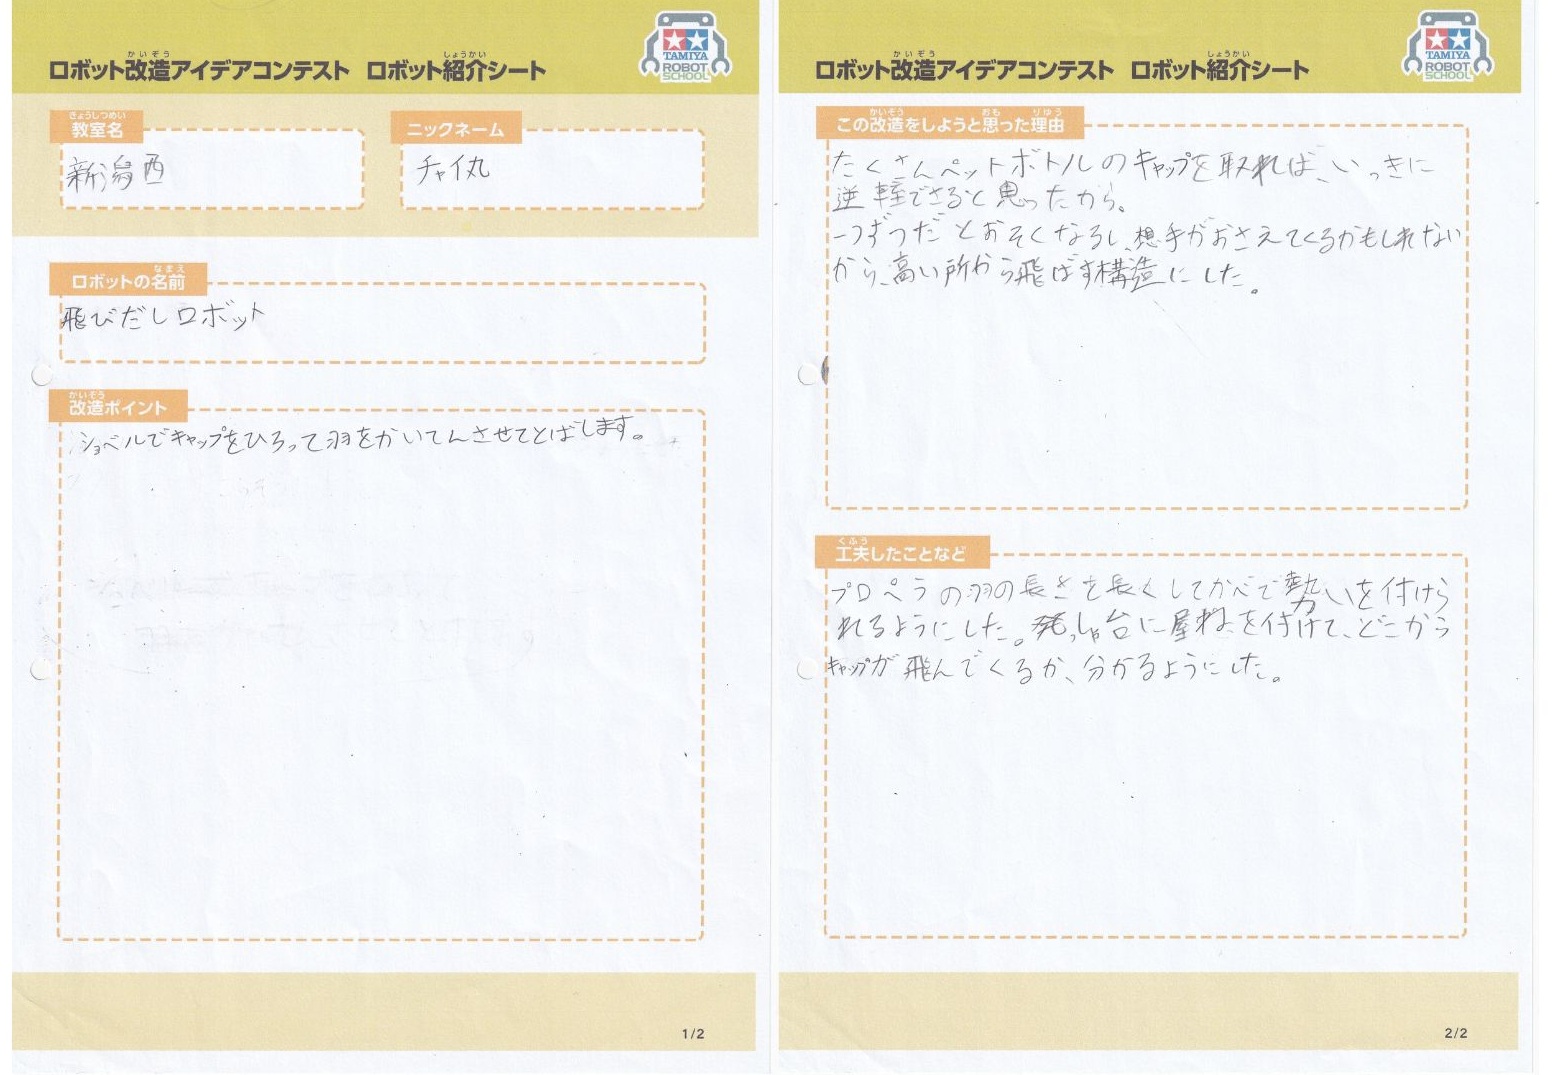 ロボット改造アイデアコンテスト ロボット紹介シート
かいぞう
しょうかい
TAMIYA
ROBOT
SCHOOL
きょうしつめい
教室名
新潟西
ニックネーム
チャイ丸
なまえ
ロボットの名前
飛びだしロボット
かいぞう
改造ポイント
ショベルでキャップをひろって羽をかいてんさせてとばします。
1/2
ロボット改造アイデアコンテスト ロボット紹介シート
かいぞう
しょうかい
TAMIYA
ROBOT
SCHOOL
かいぞう おも りゆう
この改造をしようと思った理由
たくさんペットボトルのキャップを取れば、いっきに
逆転できると思ったから。
一つずつだとおそくなるし、想手がおさえてくるかもしれない
から、高い所から飛ばす構造にした。
くふう
工夫したことなど
プロペラの羽の長さを長くしてかべで勢いを付けら
れるようにした。発っしゃ台に屋ねを付けて、どこから
キャップが飛んでくるか、分かるようにした。
2/2